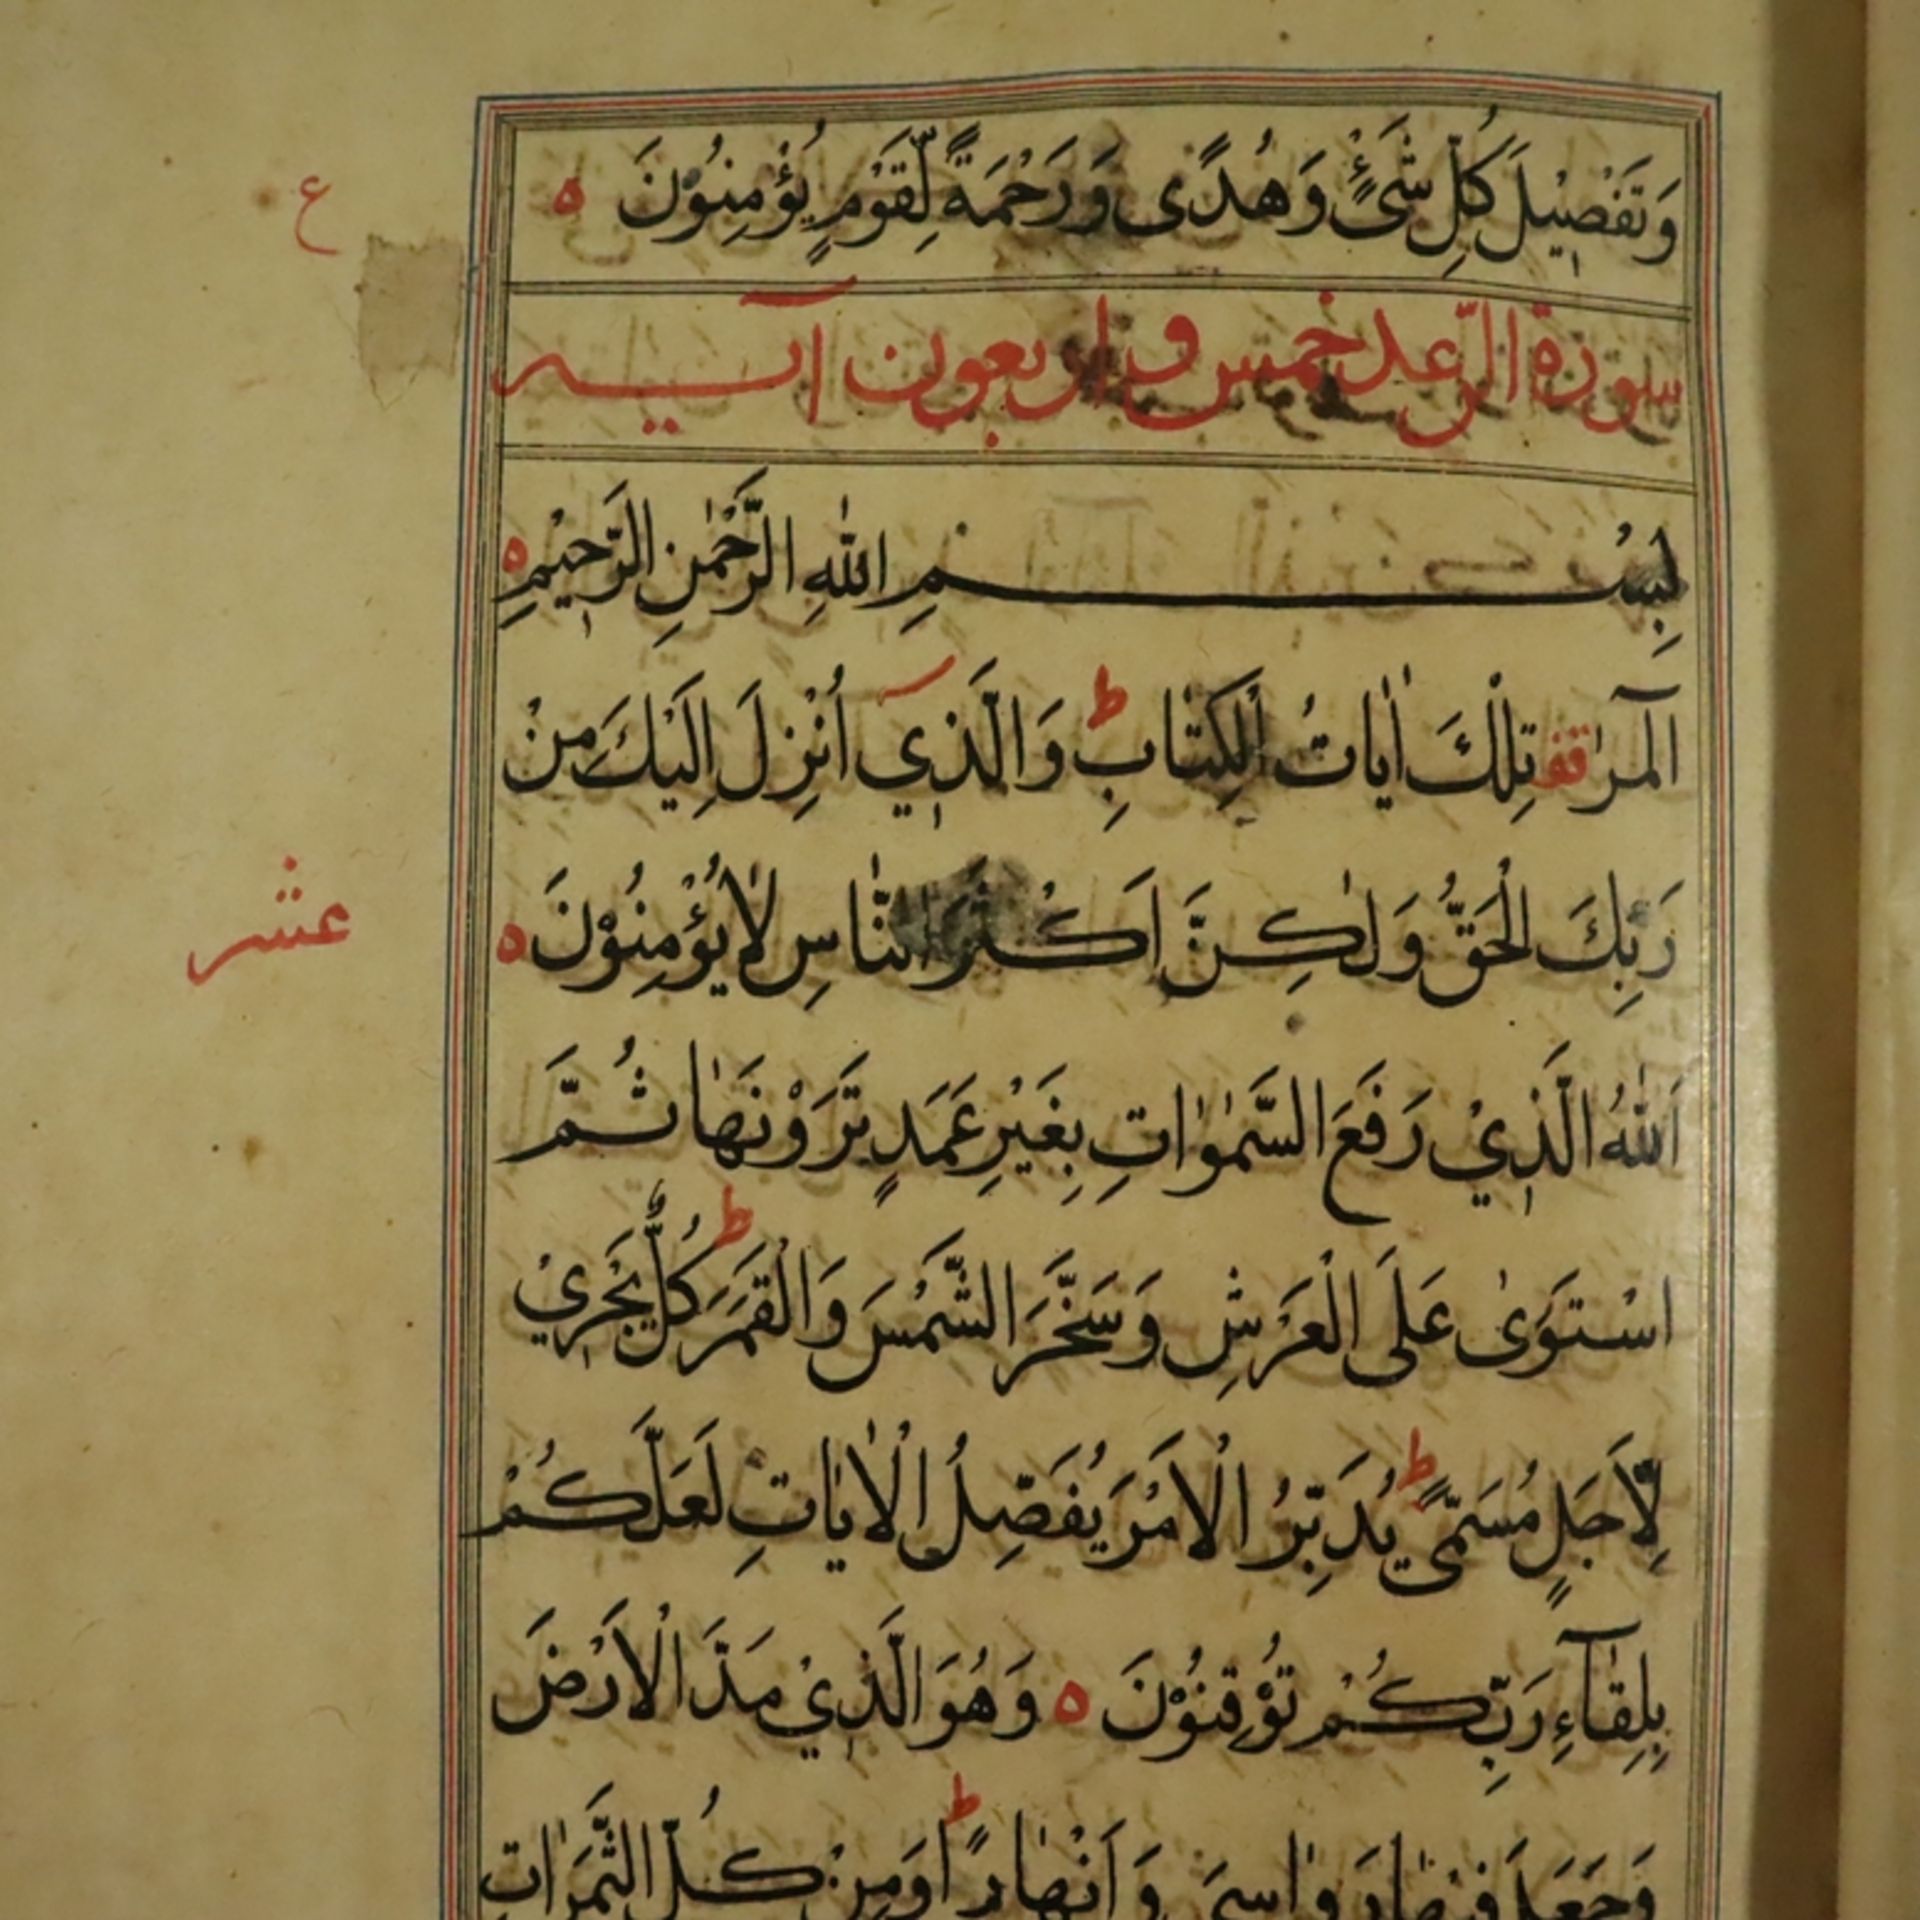 وَتَفْصِيْلَ كُلِّ شَيْءٍ وَهُدًى وَرَحْمَةً لِّقَوْمٍ يُؤْمِنُوْنَ ه
ع
سورة الرّعد خمس و اربعون آيه
بِسْمِ اللهِ الرَّحْمٰنِ الرَّحِيْمِ ه
الٓمٓرٰ قف تِلْكَ اٰيٰاتُ الْكِتٰابِ ط وَالَّذِي اُنْزِلَ اِلَيْكَ مِنْ
رَبِّكَ الْحَقُّ وَلٰكِنَّ اَكْثَرَ النّٰاسِ لٰا يُؤْمِنُوْنَ ه
عشر
اَللّٰهُ الَّذِيْ رَفَعَ السَّمٰوٰاتِ بِغَيْرِ عَمَدٍ تَرَوْنَهٰا ثُمَّ
اسْتَوٰى عَلَى الْعَرْشِ وَسَخَّرَ الشَّمْسَ وَالْقَمَرَ ط كُلٌّ يَجْرِيْ
لِاَجَلٍ مُسَمًّى ط يُدَبِّرُ الْاَمْرَ يُفَصِّلُ الْاٰيٰاتِ لَعَلَّكُمْ
بِلِقٰآءِ رَبِّكُمْ تُوْقِنُوْنَ ه وَهُوَ الَّذِيْ مَدَّ الْاَرْضَ
وَجَعَلَ فِيْهٰا رَوٰاسِيَ وَاَنْهٰارًا ط وَمِنْ كُلِّ الثَّمَرٰاتِ